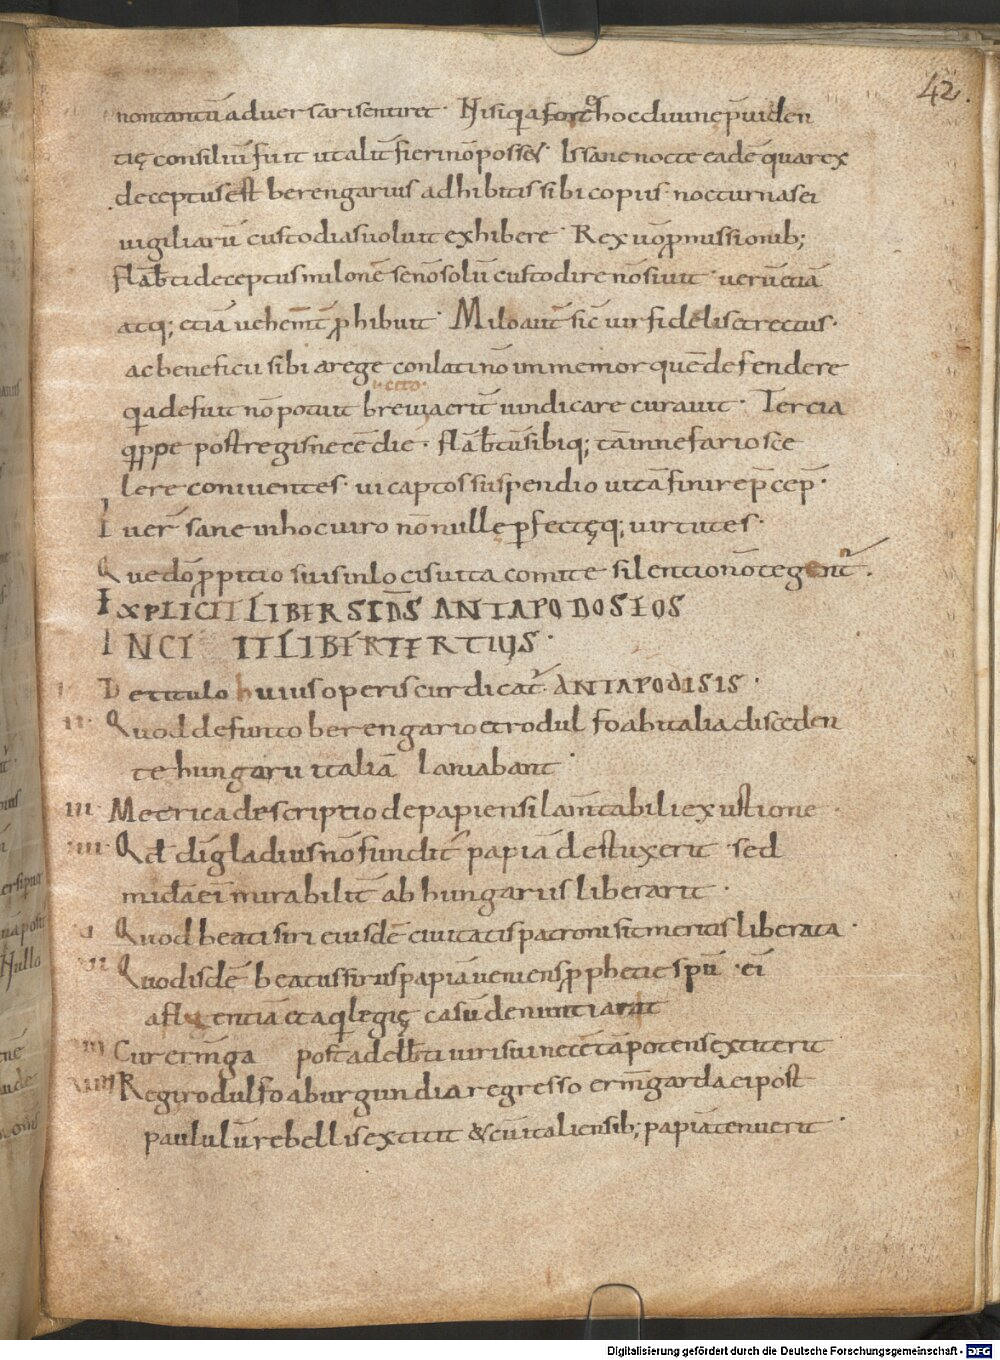 42.
nontantū aduersari sentiret · Nisi qa fort hoc diuine p̄uiden
tię consiliū fuit ut aliť fieri nō posset · Is sane nocte eadē qua rex
deceptus est berengarius adhibitis sibi copiis nocturnas ei
uigiliarū custodias uoluit exhibere · Rex uō ꝓmissionib;
flāb̄ti deceptus milonē se nō solū custodire nō siuit · uerū etiā
atq; etiā uehem̄t ꝓhibuit · Milo aut̄ sic̄ uir fidelis et rectus ·
ac beneficii sibi a rege conlati nō immemor quē defendere
qa defuit nō potuit breui acriť uindicare curauit · Tercia
qppe post regis necē die · flāb̄tū sibiq; tā in nefario sce
lere coniuentes · ui captos suspendio uitā finire p̄cep̄ ·
I uer̄ sane in hoc uiro nō nullę ꝑfectęq; uirtutes ·
Que dō ꝓpitio suis in locis uita comite silentio nō tegent̄ .
EXPLICIT LIBER SCD̄S ANTAPODOSEOS
INCI IT LIBER TERTIUS ·
I De titulo huius operis cur dicat̄ · ANTAPODISIS ·
II · Quod defuncto berengario et rodulfo ab italia disceden
te hungarii italiā laniabant ·
III · Metrica descriptio de papiensi lam̄tabili exustione ·
IIII · Qd̄ dī gladius nō fundit̄ papiā destuxerit · sed
mid̄a ei mirabiliť ab hungariis liberarit ·
Quod beati siri eiusdē ciuitatis patroni sit meritis liberata ·
VI Quod isdē beatus sirus papiā ueniens ꝓphetie sp̄u · ei
afluentiā et aqlegię casū denuntiarat
Cur erm̄ga post adelb̄ti uiri sui necē tā potens extiterit
VIII Regi rodulfo a burgundia regresso erm̄garda ei post
paululū rebellis extitit & cū italiensib; papiā tenuerit ·
Digitalisierung gefördert durch die Deutsche Forschungsgemeinschaft - DFG